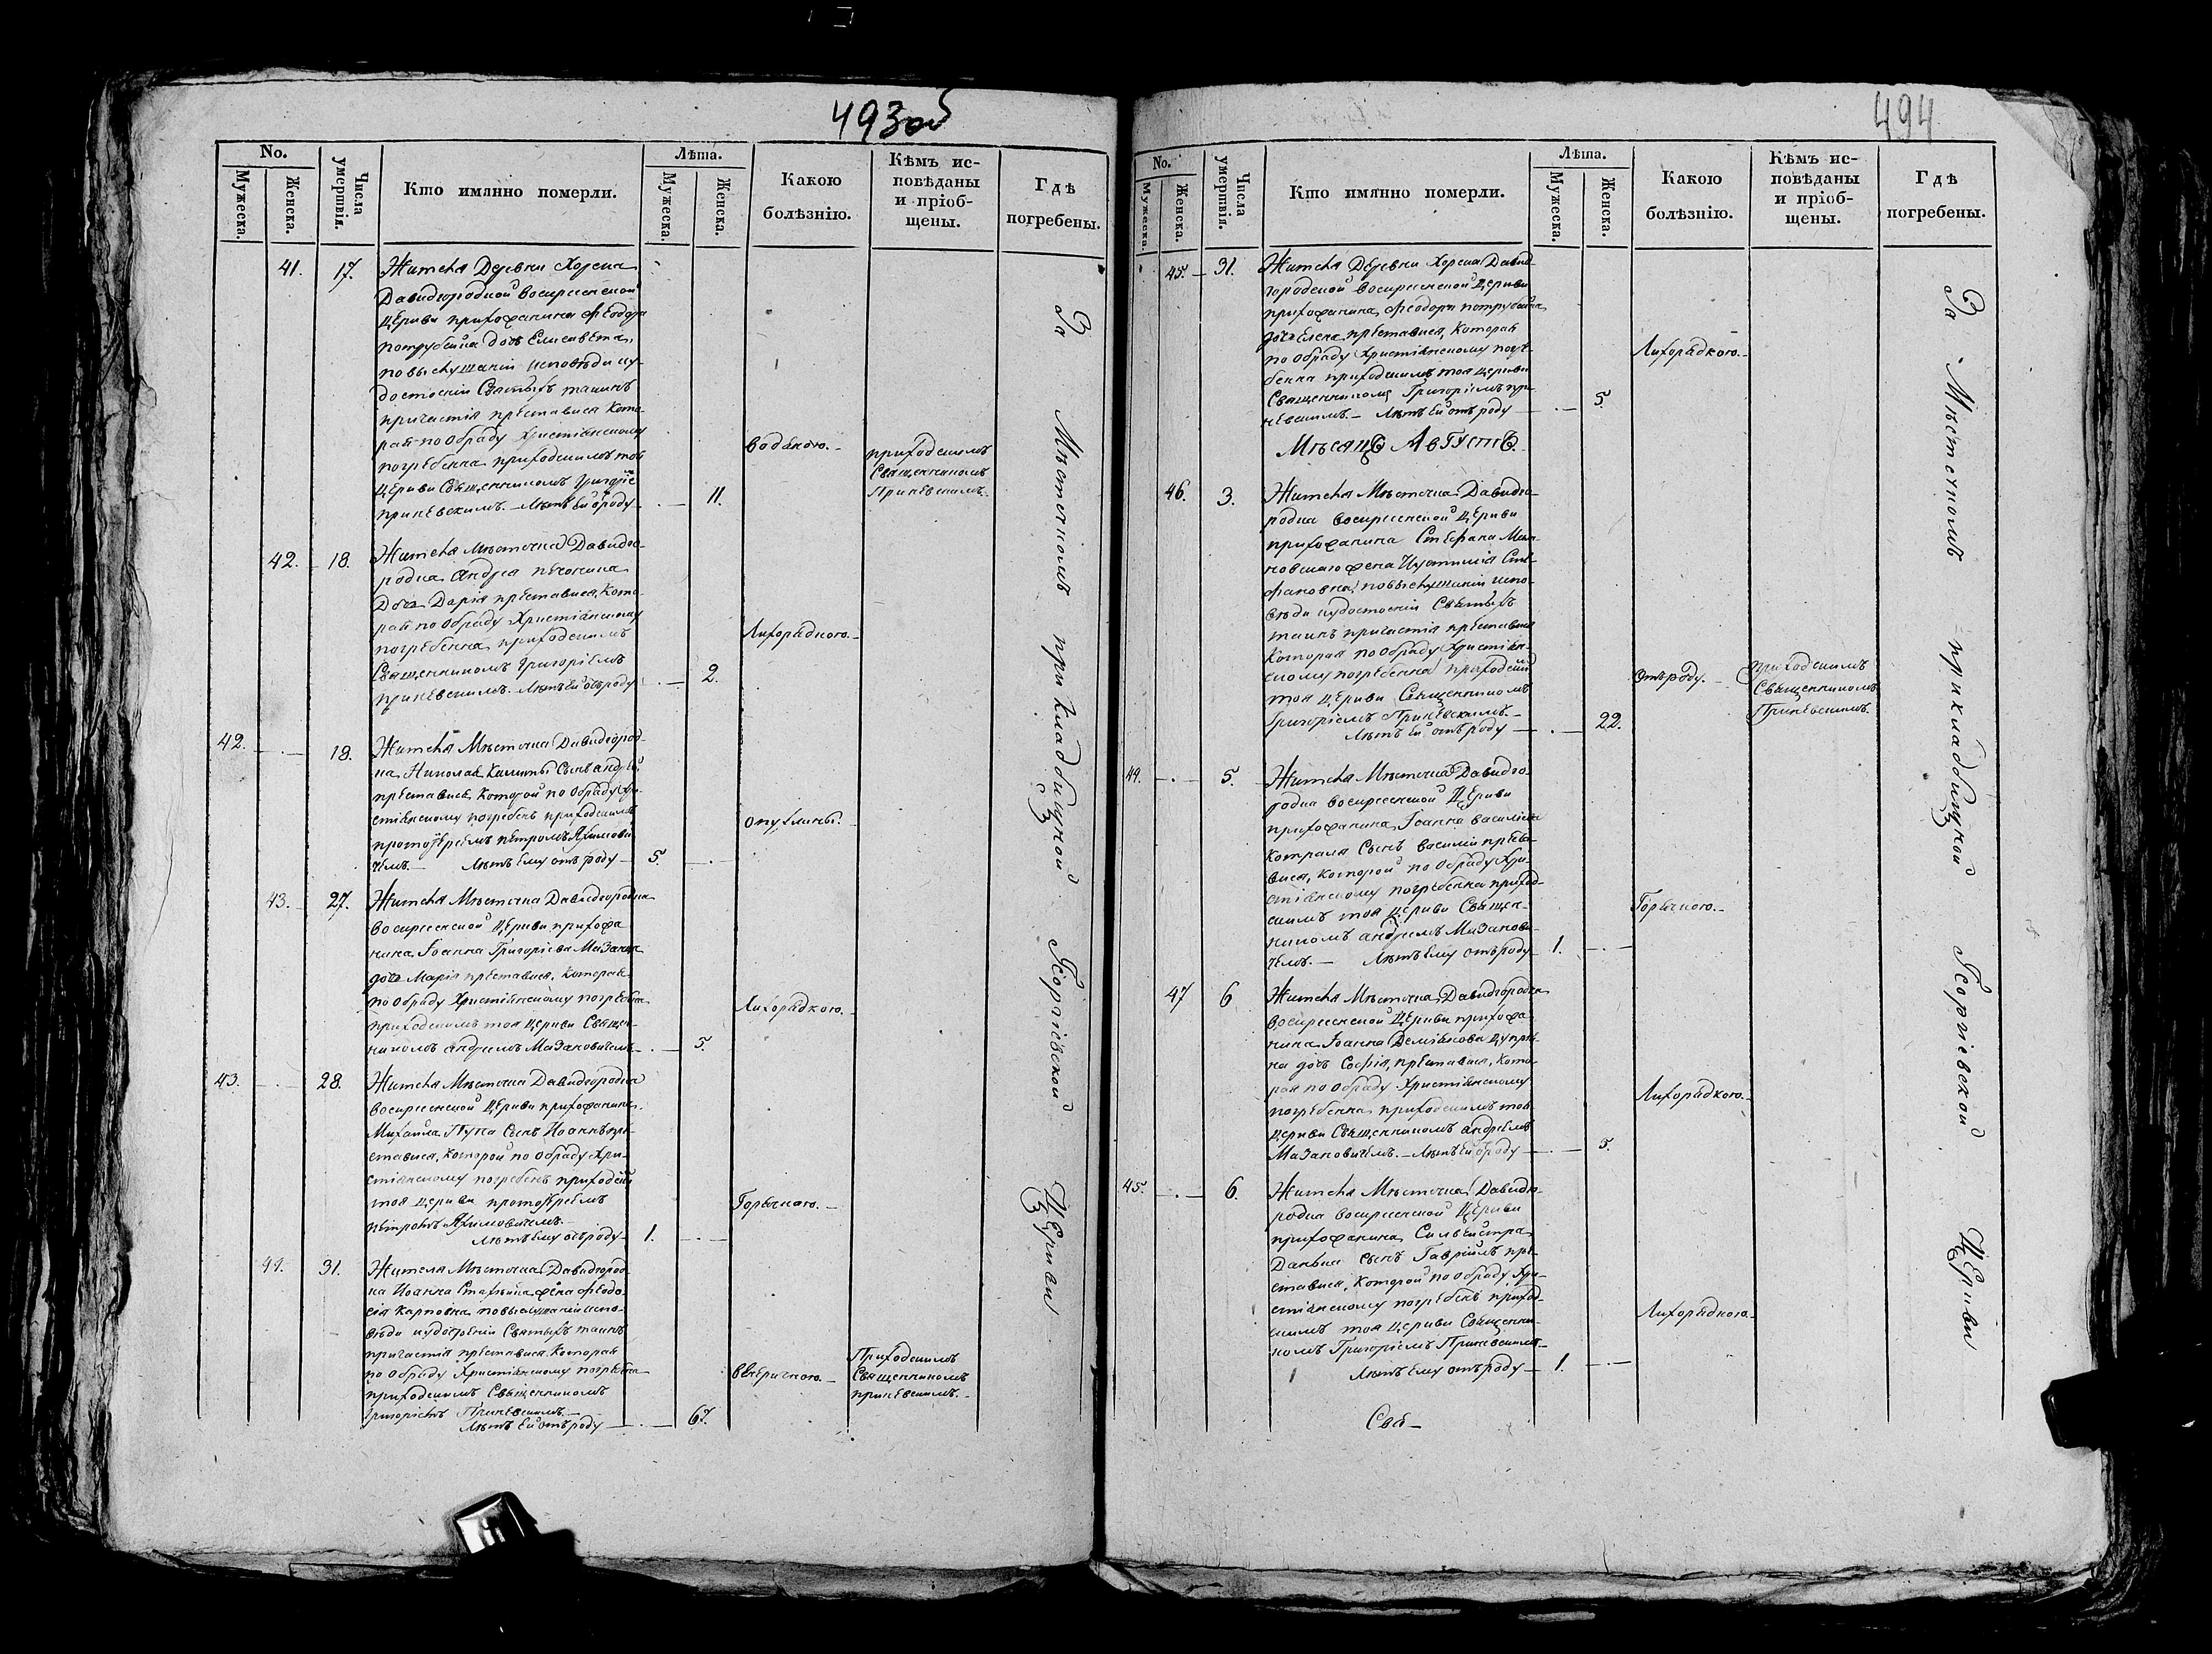 493об
No.
Мужеска.
Женска.
Числа умертвія.
Кто имянно померли.
Лѣта.
Мужеска.
Женска.
Какою болѣзнію.
Кѣмъ исповѣданы и пріобщены.
Гдѣ погребены.
41. 17. Жителя Деревни Хорска
Давидгородской воскресенской
Церкви прихожанина Феодора
дочь Елисавета,
по выслушаніи исповѣди и у-
достоеніи Святыхъ таинъ
причастія преставися Кото-
рая по Обряду Христіанскому
погребенна приходскимъ тоя
Церкви Священникомъ Григоріе
- Лѣтъ Ей ѿроду — 11.
водяною. -
приходскимъ
Священникомъ
42. 18. Жителя Мѣстечка Давидго-
родка Андрея
Дочь Дарія преставися, Кото-
рая по Обряду Христіанскому
погребенна приходскимъ
Священникомъ Григоріемъ
- Лѣтъ Ей ѿъроду — 2.
Лихорадкою. -
42. 18. Жителя Мѣстечка Давидгород-
ка Николая Сынъ Андрей
преставися Которой по Обряду Хри-
стіанскому погребенъ приходскимъ
протоіереемъ Петромъ Якимови-
чемъ. - Лѣтъ Ему отъ роду — 5.
опухлины. -
43. 27. Жителя Мѣстечка Давидгородка
воскресенской Церкви прихожа
нина Іоанна Григоріева
дочь Марія преставися, Которая
по Обряду Христіанскому погребенна
приходскимъ тоя Церкви Священ-
никомъ Андреемъ Мазановичемъ — 5.
Лихорадкою. -
43. 28. Жителя Мѣстечка Давидгородка
воскресенской Церкви прихожанина
Михаила Сынъ Иоаннъ пре-
ставися, Которой по Обряду Хри-
стіанскому погребенъ приходскі
тоя церкви протоіереемъ
Петромъ Якимовичемъ. -
Лѣтъ Ему ѿъроду — 1.
Горячкою. -
44. 31. Жителя Мѣстечка Давидгород-
ка Иоанна жена Феодо-
сія Карповна по выслушаніи испо-
вѣди и удостоеніи Святыхъ таинъ
причастія преставися Которая
по Обряду Христіанскому погребенна
приходскимъ Священникомъ
Григоріемъ
Лѣтъ Ей отъ роду — 67.
Приходскимъ
Священникомъ
За Мѣстечкомъ при кладбищной Георгіевской Церкви
494
No.
Мужеска.
Женска.
Числа умертвія.
Кто имянно померли.
Лѣта.
Мужеска.
Женска.
Какою болѣзнію.
Кѣмъ исповѣданы и пріобщены.
Гдѣ погребены.
45. 31. Жителя Деревни Хорска Давид-
городской воскресенской Церкви
прихожанина Феодора
дочь Елена преставися, Которая
по Обряду Христіанскому погре-
бенна приходскимъ тоя Церкви
Священникомъ Григоріемъ
- Лѣтъ Ей отъ роду — 5.
Лихорадкою. -
Мѣсяцъ Августъ.
46. 3. Жителя Мѣстечка Давидго-
родка воскресенской Церкви
прихожанина Стефана
жена Сте-
фановна, по выслушаніи испо-
вѣди и удостоеніи Святыхъ
таинъ причастія преставися
Которая по Обряду Христіан-
скому погребенна приходскі
тоя Церкви Священникомъ
Григоріемъ
Лѣтъ Ей отъ роду — 22.
приходскимъ
Священникомъ
44. 5. Жителя Мѣстечка Давидго-
родка воскресенской Церкви
прихожанина Іоанна василіева
Сынъ василій преста-
вися, Которой по Обряду Хри-
стіанскому погребенна приход-
скимъ тоя Церкви Священ-
никомъ Андреемъ Мазанови-
чемъ. - Лѣтъ Ему отъ роду — 1.
Горячкою. -
47 6 Жителя Мѣстечка Давидгородка
воскресенской Церкви прихожа-
нина Іоанна Деміянова
дочь Софія, преставися, Кото-
рая по Обряду Христіанскому
погребенна приходскимъ тоя
Церкви Священникомъ Андреемъ
Мазановичемъ. - Лѣтъ Ей ѿроду — 5.
Лихорадкою. -
45. 6. Жителя Мѣстечка Давидго-
родка воскресенской Церкви
прихожанина Сильвестра
сынъ Гавріилъ пре-
ставися, Которой по Обряду Хри-
стіанскому погребенъ приход-
скимъ тоя Церкви Священни-
комъ Григоріемъ
Лѣтъ Ему отъ роду — 1.
Лихорадкою. -
За Мѣстечкомъ при кладбищной Георгіевской Церкви